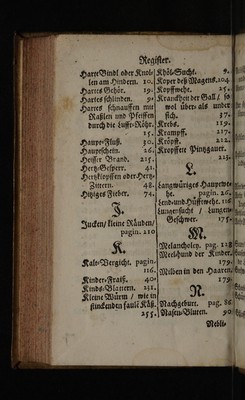 Register.
Harte Bindl oder Knol-
len am Hindern. 10.
Hartes Gehör. 19.
Hartes schlinden. 9.
Hartes schnauffen mit
Raßlen und Pfeiffen
durch die Lufft-Röhr.
15.
Haupt-Fluß. 30.
Hauptschein. 26.
Heisser Brand. 215.
Hertz-Gesperr. 41.
Hertzklopffen oder Hertz-
Zittern. 48.
Hitziges Fieber. 74.
J.
Jucken/ kleine Räuden/
pagin. 110
K.
Kalt-Vergicht. pagin.
116.
Kinder-Fraiß. 40
Kinds-Blattern. 231.
Kleine Würm / wie in
stinckenden faulē Käß.
255.
Khöl-Sucht. 9.
Koper deß Magens. 104
Kopffwehe. 25.
Kranckheit der Gall / so
wol über- als under
sich. 57.
Krebs. 119.
Krampff. 217.
Kröpff. 212.
Kropffete Pintzgauer.
223.
L.
Langwüriges Hauptwe-
he. pagin. 26.
Lend- und Hüfftwehe. 116
Lungensucht / Lungen-
Geschwer. 175.
M.
Melancholey. pag. 128
Meelhund der Kinder.
179.
Milben in den Haaren,
179.
N.
Nachgeburt. pag. 86
Nasen-Bluten. 90.
Nebli-